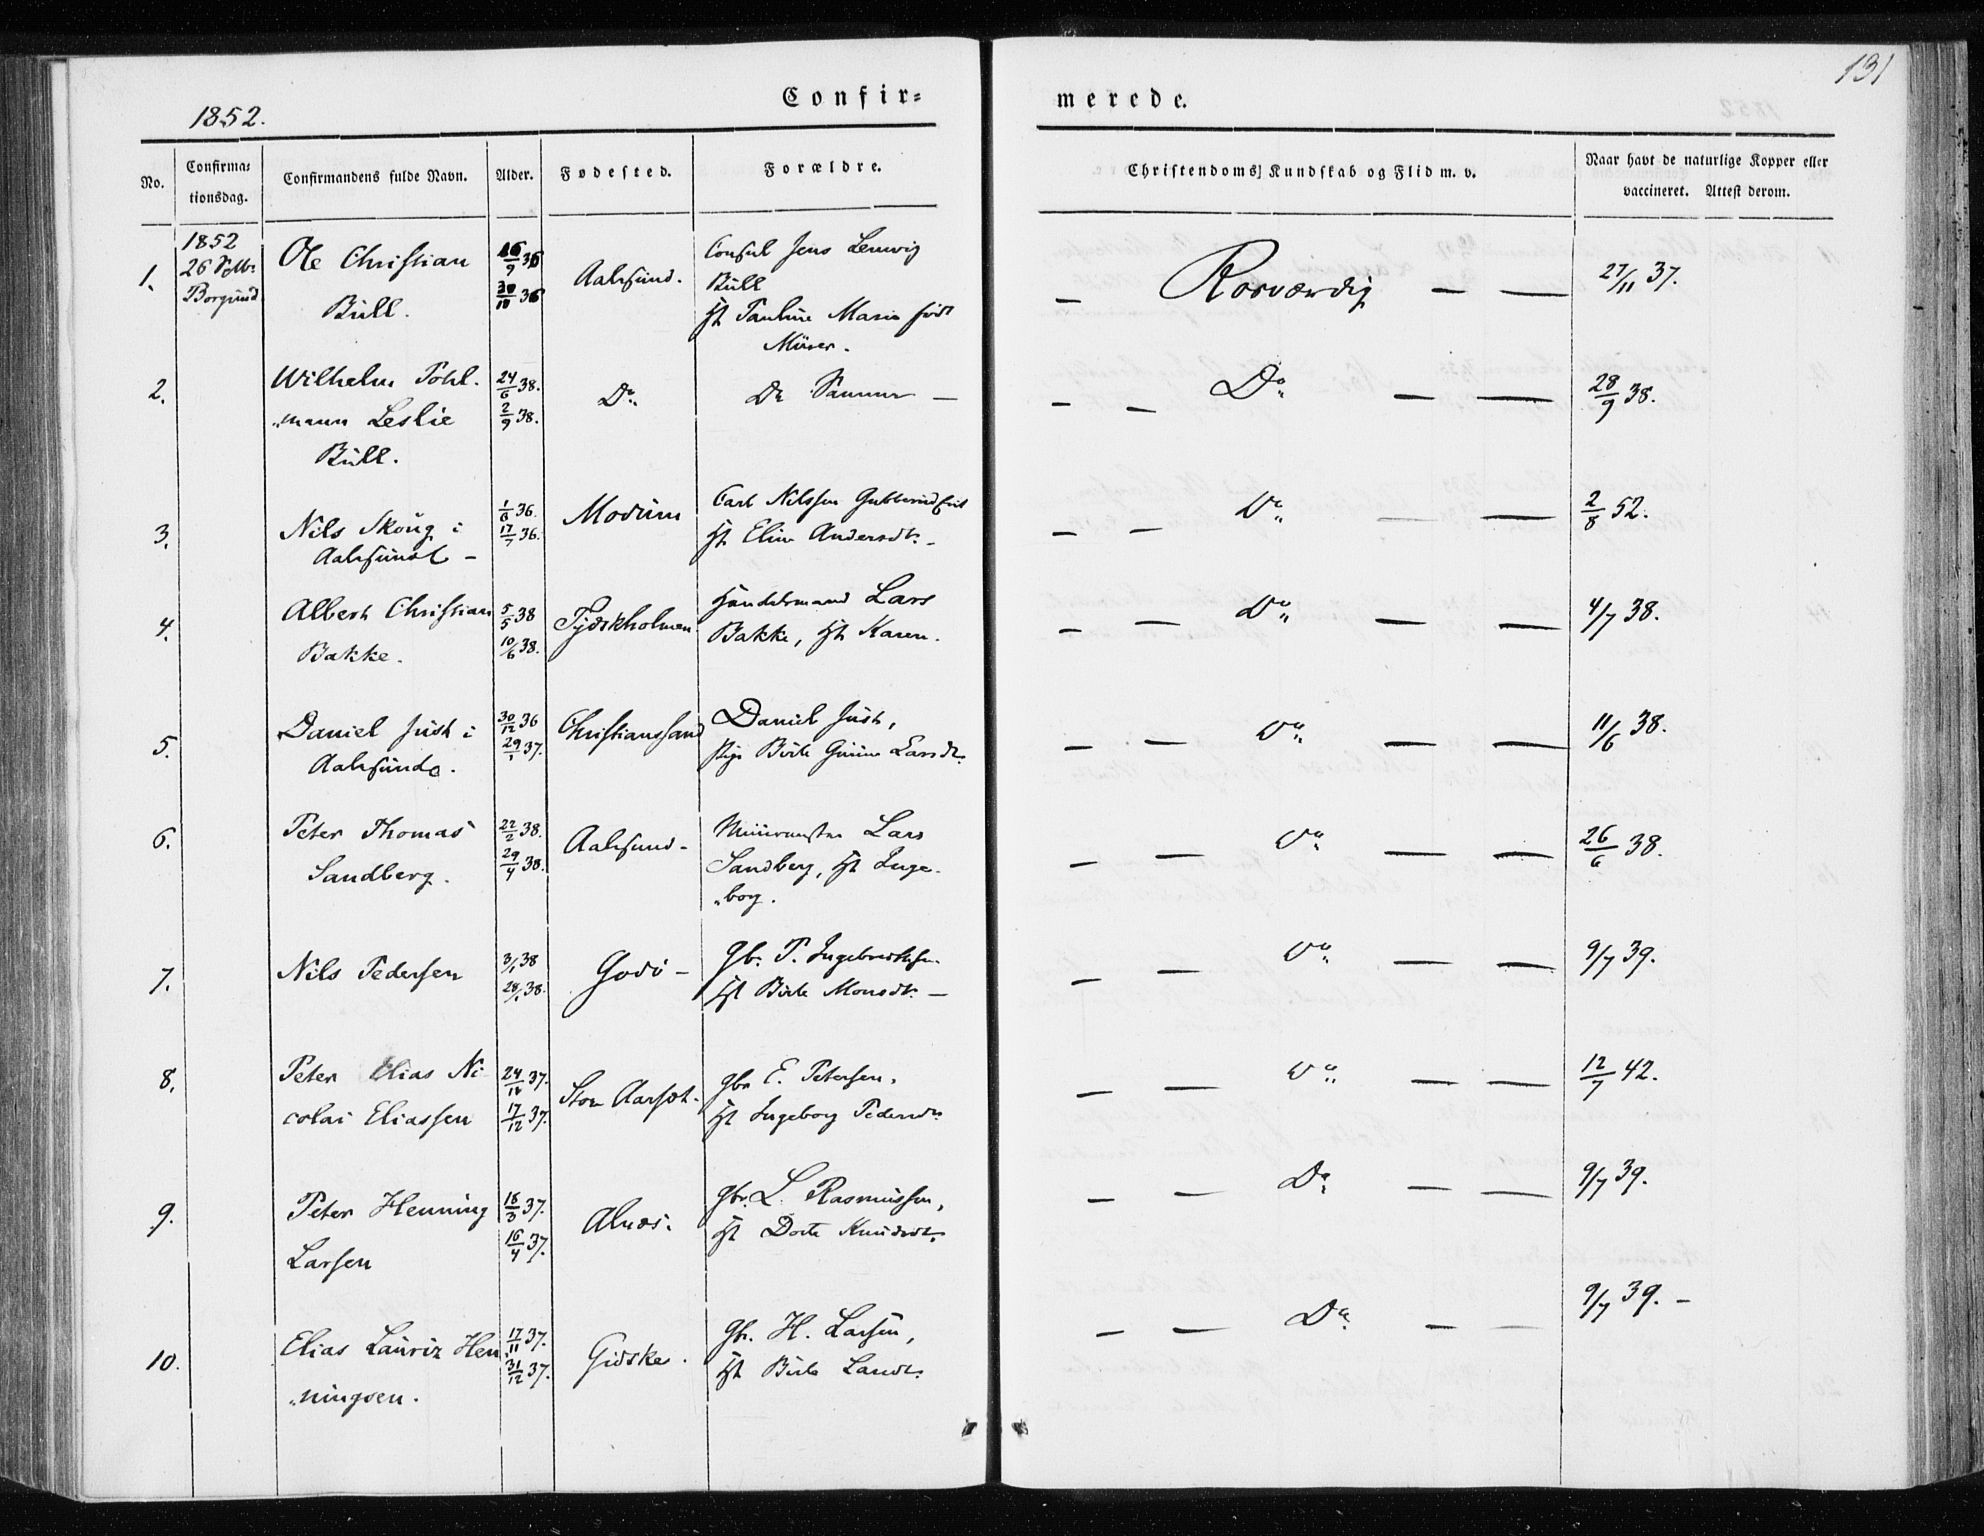 131
1852.
Confir=
merede.
No.
Confirma=
tionsdag.
Confirmandens fulde Navn.
Alder.
Fødested.
Forældre.
Christendoms Kundskab og Flid m. v.
Naar havt de naturlige Kopper eller
vaccineret. Attest derom.
1.
1852
26 Sptbr
Borgund
Ole Christian
Büll.
16/9 36
30/10 36
Aalesund.
Consul Jens Lemvig
Büll
Pauline Marie født
— Roesværdig — —
27/11 37.
2.
Wilhelm Pohl-
„mann Leslie
Büll.
24/6 38.
2/9 38.
Do
De Samme —
— — Do — —
28/9 38.
3.
Nils Skoug i
Aalesund —
1/6 36.
17/7 36.
Modum
Carl Nilssen
Andersdr. —
— — Do — —
2/8 52.
4.
Albert Christian
Bakke.
5/5 38
10/6 38.
Tydskholmen
Handelsmand Lars
Bakke, Karen.
— — Do — —
4/7 38.
5.
Daniel Just i
Aalesund.
30/12 36
29/1 37.
Christianssand
Daniel Just,
Larsdr.
— — Do — —
11/6 38.
6.
Peter Thomas
Sandberg.
22/2 38.
29/4 38.
Aalesund-
Muurmester Lars
Sandberg, Inge-
„borg.
— — Do — —
26/6 38.
7.
Nils Pedersen
3/1 38
28/1 38.
Godø —
Gbr. P. Ingebrechtsen
Birte Monsdr. —
— — Do — —
9/7 39.
8.
Peter Elias Ni-
colai Eliassen
37.
17/12 37.
Store Aarset.
gbr E. Petersen,
Ingeborg Pedersdr.
— — Do — —
12/7 42.
9.
Peter Henning
Larsen
18/3 37.
16/4 37.
Alnæs.
gbr. L. Rasmussen,
Dorte Knudsdr.
— — Do — —
9/7 39.
10.
Elias Lauriz Hen
„ningsen.
17/11 37.
31/12 37.
Gidske.
Gbr. H. Larsen,
Birte Larsdr.
— — Do — —
9/7 39. —